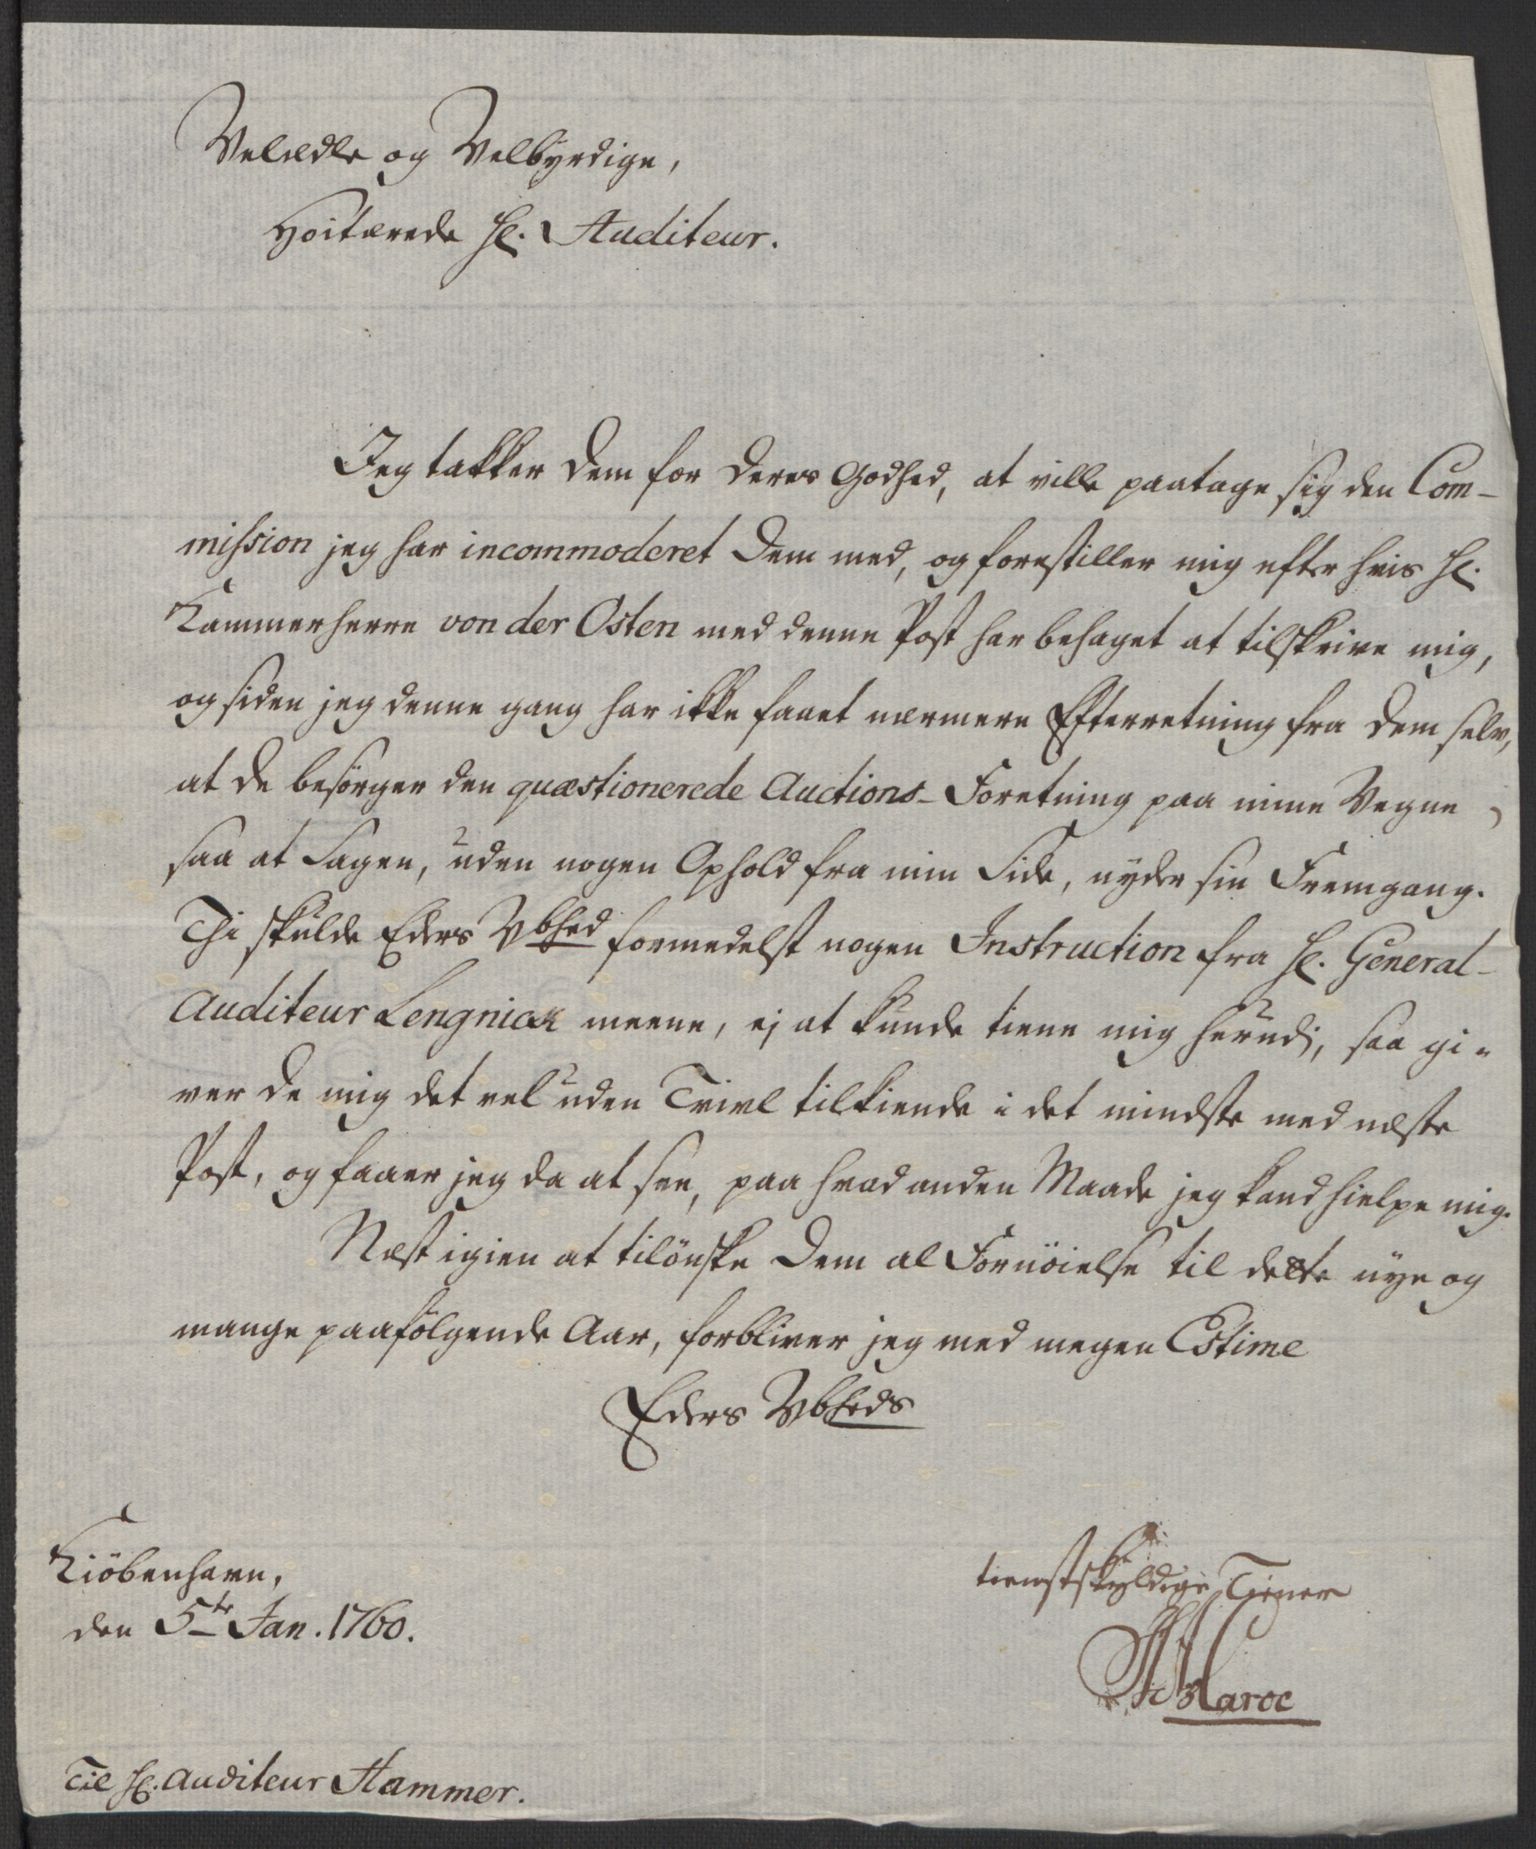 Velædle og Velbyrdige,
Høitærede Hr. Auditeur.
Jeg takker Dem for Deres Godhed, at ville paatage sig den Com-
mission jeg har incommoderet Dem med, og forestiller mig efter hvis Hr.
Kammerherre von der Osten med denne Post har behaget at tilskrive mig,
og siden jeg denne gang har ikke faaet nærmere Efterretning fra Dem selv,
at De besörger den quæstionerede Auctions-Foretning paa mine Vegne,
saa at Sagen, uden nogen Ophold fra min Side, nyder sin Fremgang.
Thi skulde Eders Vbhed formedelst nogen Instruction fra Hr. General-
Auditeur Lengnick meene, ej at kunde tiene mig herudj, saa gi-
ver De mig det vel uden Tvivl tilkiende i det mindste med næste
Post, og faaer jeg da at see, paa hvad anden Maade jeg kand hielpe mig.
Næst igien at tilönske Dem al Fornöielse til dette nye og
mange paafölgende Aar, forbliver jeg med megen Estime
Eders Vbheds
Kiöbenhavn,
den 5te Jan. 1760.
tienstskyldige Tiener
Maroc
Til Hr. Auditeur Hammer.